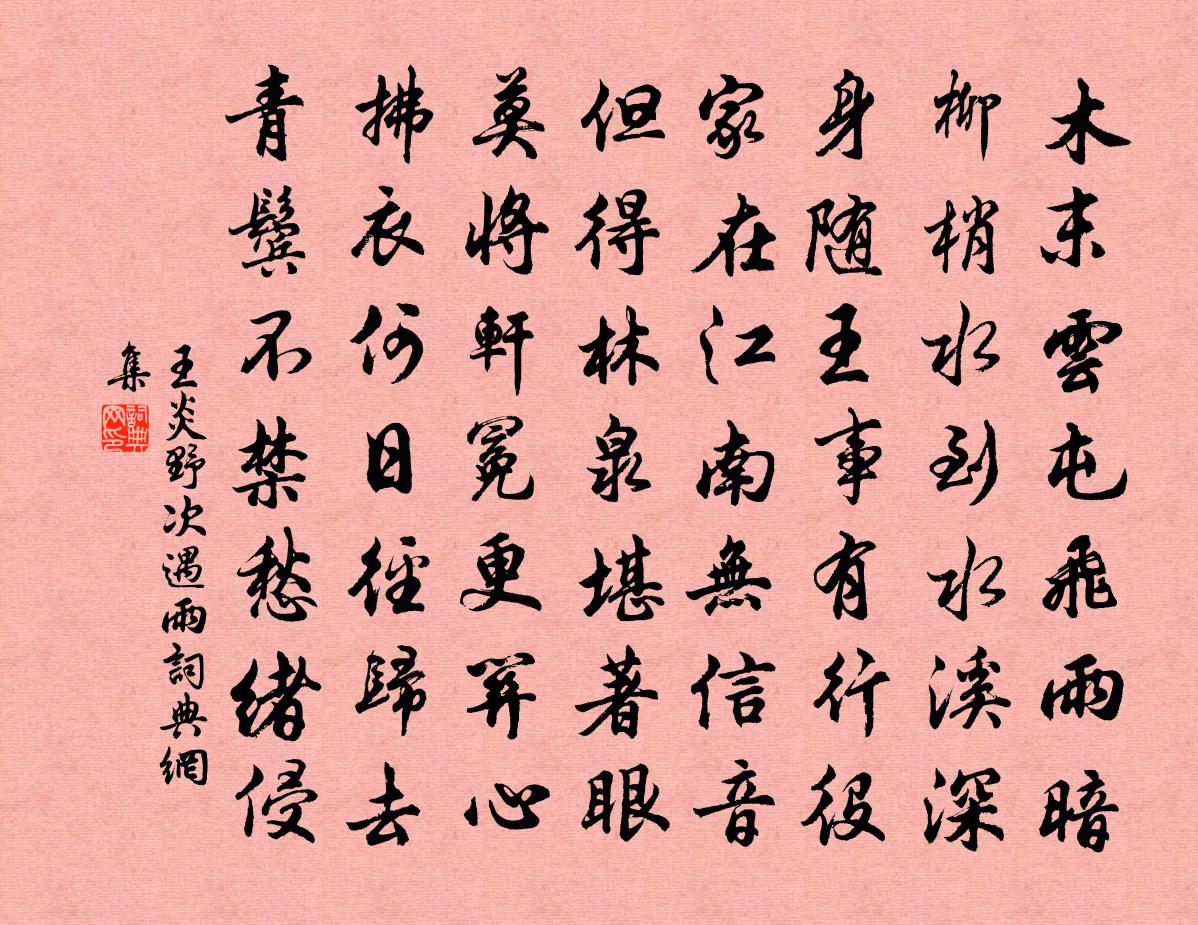 木末雲屯飛雨暗
柳梢水到水溪深
身随王事有行役
家在江南無信音
但得林泉堪著眼
莫將軒冕更關心
拂衣何日徑歸去
青鬢不禁愁緒侵
王炎野次遇雨詞典網
集
詞典网印